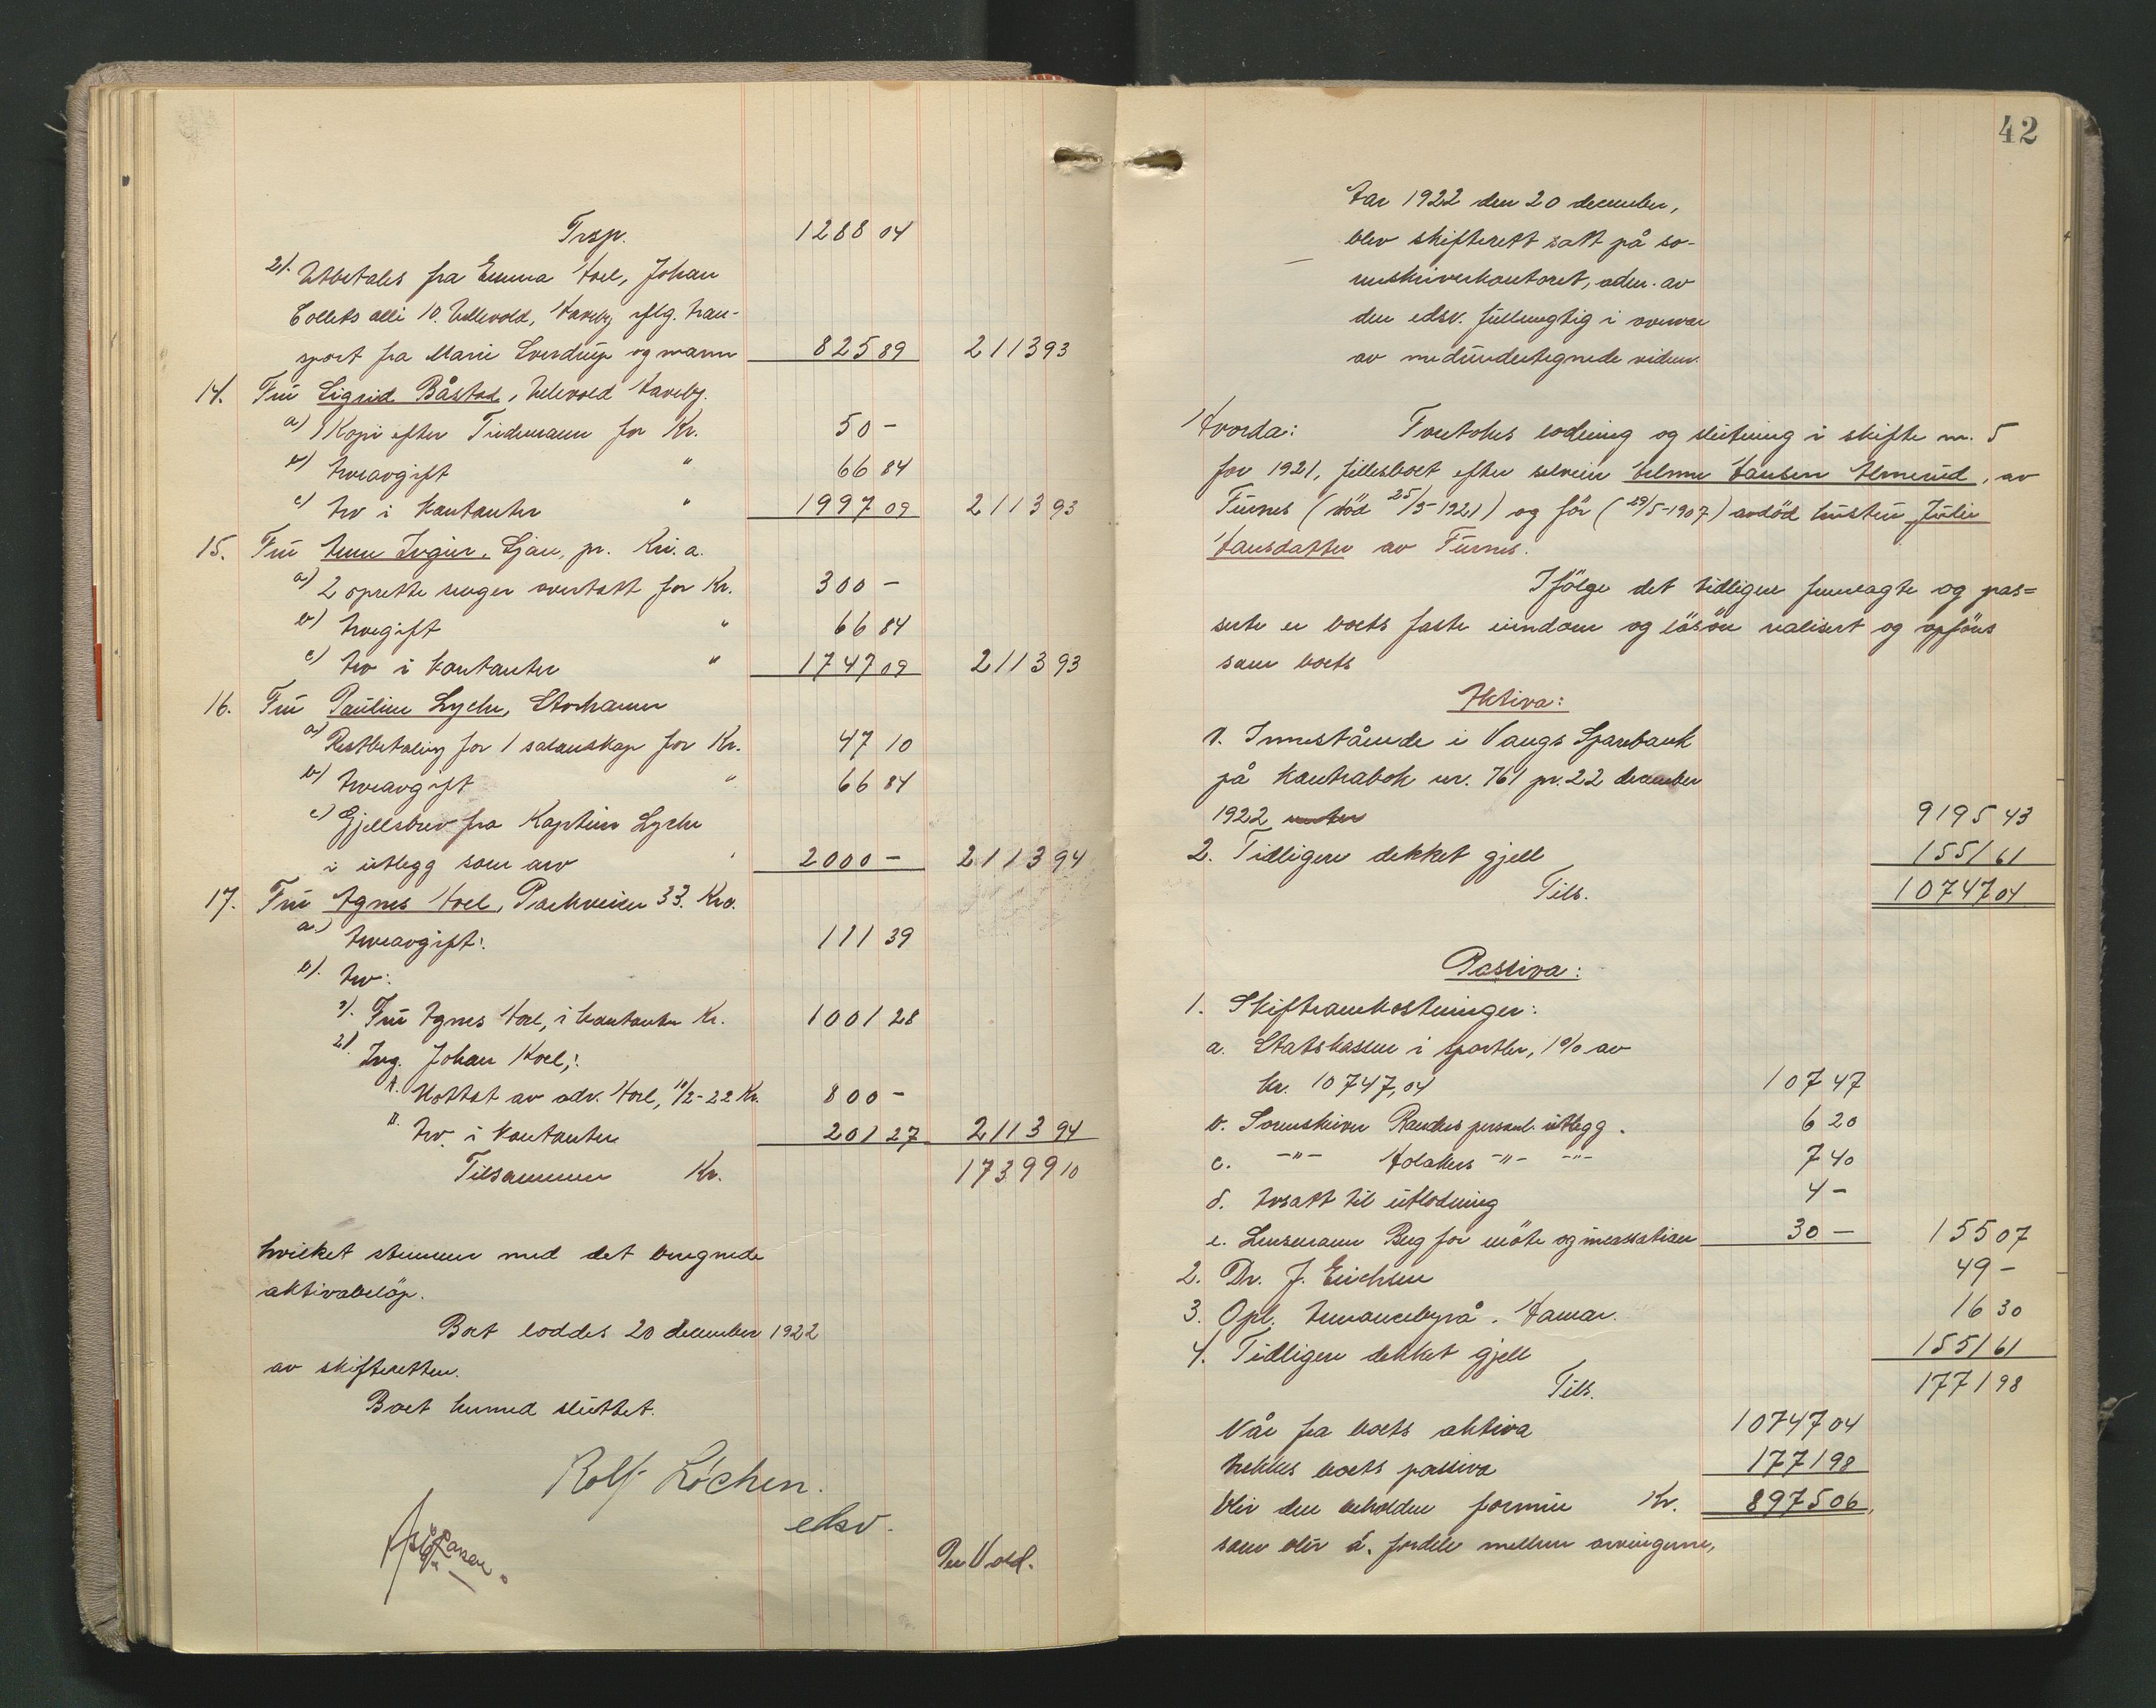 Trsp. 1288 04
2). Utbetales fra Emma Hoel, Johan
Collets allé 10. Ullevold, V.Aker flg. tran-
sport fra Marie Sverdrup og mann 825 89 2113 93
14. Frü Sigrid Båstad, Ullevold
a) 1 Kopi efter Tidemann for Kr. 50 -
b) Arveavgift " 66 84
c) Arv i kontanter " 1997 09 2113 93
15. Frü Ljan, pr. Kr.a.
a) 2 oprette senger overtatt for Kr. 300 -
b) Arvegift " 66 84
c) Arv i kontanter " 1747 09 2113 93
16. Frü Pauline Lyche, Storhamar
a) Restbetaling for 1 salonskap for Kr. 47 10
b) Arveavgift " 66 84
c) Gjellsbrev fra Kaptein Lyche
i ütlegg som arv " 2000 - 2113 94
17. Frü Agnes Hoel, Parkveien 33. Kra.
a.) Arveavgift: 111 39
b). Arv:
1). Frü Agnes Hoel, i kontanter Kr. 1001 28
2). Ing. Johan Hoel;:
A. Mottat av adv. Hoel, 10/2-22 Kr. 800 -
B. Arv i kontanter 201 27 2113 94
Tilsammen Kr. 17399 10
hvilket stemmer med det beregnede
aktivabelöp.
Boet loddes 20 december 1922
av skifteretten.
Boet hermed slüttet.
Rolf Löchen.
edsv.
Per Vold.
42
Aar 1922 den 20 december,
blev skifterett satt på so-
renskriverkontoret, adm. av
den edsv. füllmegtig i overvær
av medündertegnede vidner.
Hvorda: Foretokes lodning og slütning i skifte nr. 5
for 1921, fellesboet efter selveier Helmer Hansen Almerüd, av
Fürnes (död 25/5-1921) og för (29/5-1907) avdöd hüstrü Jülie
Hansdatter av Fürnes.
Ifölge det tidligere fremlagte og pas=
serte er boets faste eiendom og lösöre realisert og opföres
som boets
Aktiva:
1. Innestående i Vangs Sparebank
på kontrabok nr. 761 pr. 22 december
1922 9195 43
2. Tidligere dekket gjell 1551 61
Tils. 10747 04
Passiva:
1. Skifteomkostninger:
a. Statskassen i sportler, 1% av
kr. 10747,04 107 47
b. Sorenskriver Randers personl. ütlegg. 6 20
c. -"- Holakers -"- -"- 7 40
d. Avsatt til ütlodning 4 -
e. Lensmann Berg for möte og inkassation 30 - 155 07
2. Dr. J. Erichsen 49 -
3. Opl. Annoncebyrå. Hamar. 16 30
4. Tidligere dekket gjell 1551 61
Tils. 1771 98
Når fra boets aktiva 10747 04
trekkes boets passiva 1771 98
blir den beholdne formüe Kr. 8975 06,
som blir å fordele mellem arvingerne,